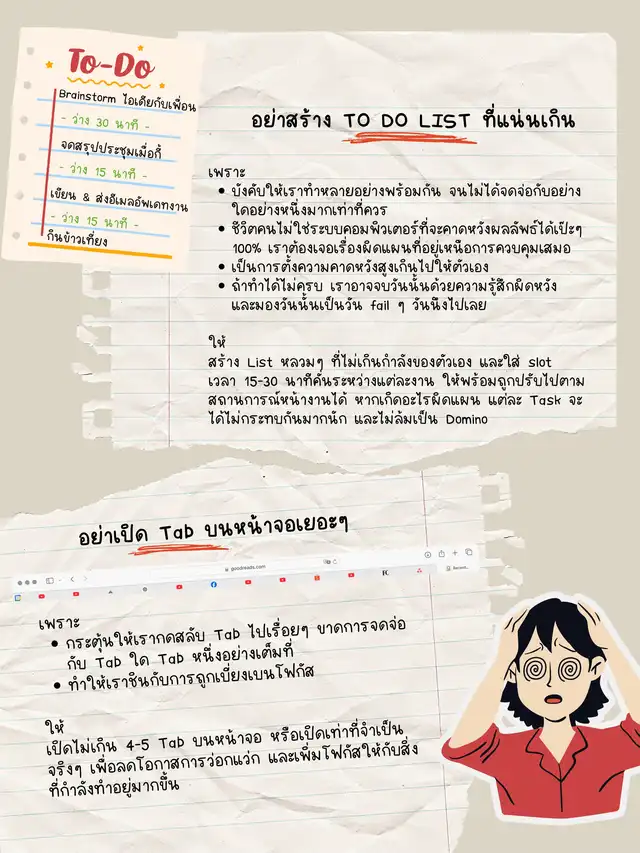 To-Do
Brainstorm ไอเดียกับเพื่อน
- ว่าง 30 นาที -
จดสรุปประชุมเมื่อกี้
- ว่าง 15 นาที -
เขียน & ส่งอีเมลอัพเดทงาน
- ว่าง 15 นาที -
กินข้าวเที่ยง
อย่าสร้าง TO DO LIST ที่แน่นเกิน
เพราะ
• บังคับให้เราทำหลายอย่างพร้อมกัน จนไม่ได้จดจ่อกับอย่าง
ใดอย่างหนึ่งมากเท่าที่ควร
• ชีวิตคนไม่ใช่ระบบคอมพิวเตอร์ที่จะคาดหวังผลลัพธ์ได้เป๊ะๆ
100% เราต้องเจอเรื่องผิดแผนที่อยู่เหนือการควบคุมเสมอ
• เป็นการตั้งความคาดหวังสูงเกินไปให้ตัวเอง
• ถ้าทำได้ไม่ครบ เราอาจจบวันนั้นด้วยความรู้สึกผิดหวัง
และมองวันนั้นเป็นวัน fail ๆ วันนึงไปเลย
ให้
สร้าง List หลวมๆ ที่ไม่เกินกำลังของตัวเอง และใส่ slot
เวลา 15-30 นาทีคั่นระหว่างแต่ละงาน ให้พร้อมถูกปรับไปตาม
สถานการณ์หน้างานได้ หากเกิดอะไรผิดแผน แต่ละ Task จะ
ได้ไม่กระทบกันมากนัก และไม่ล้มเป็น Domino
อย่าเปิด Tab บนหน้าจอเยอะๆ
goodreads.com
เพราะ
• กระตุ้นให้เรากดสลับ Tab ไปเรื่อยๆ ขาดการจดจ่อ
กับ Tab ใด Tab หนึ่งอย่างเต็มที่
• ทำให้เราชินกับการถูกเบี่ยงเบนโฟกัส
ให้
เปิดไม่เกิน 4-5 Tab บนหน้าจอ หรือเปิดเท่าที่จำเป็น
จริงๆ เพื่อลดโอกาสการว่อกแว่ก และเพิ่มโฟกัสให้กับสิ่ง
ที่กำลังทำอยู่มากขึ้น